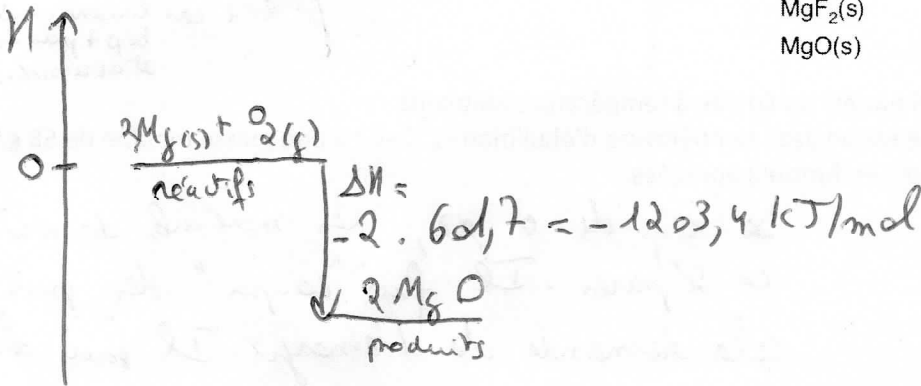 MgF₂(s)
MgO(s)
H
2Mg(s) + O₂(g)
0
réactifs
ΔH =
-2 · 601,7 = -1203,4 kJ/mol
2 MgO
produits